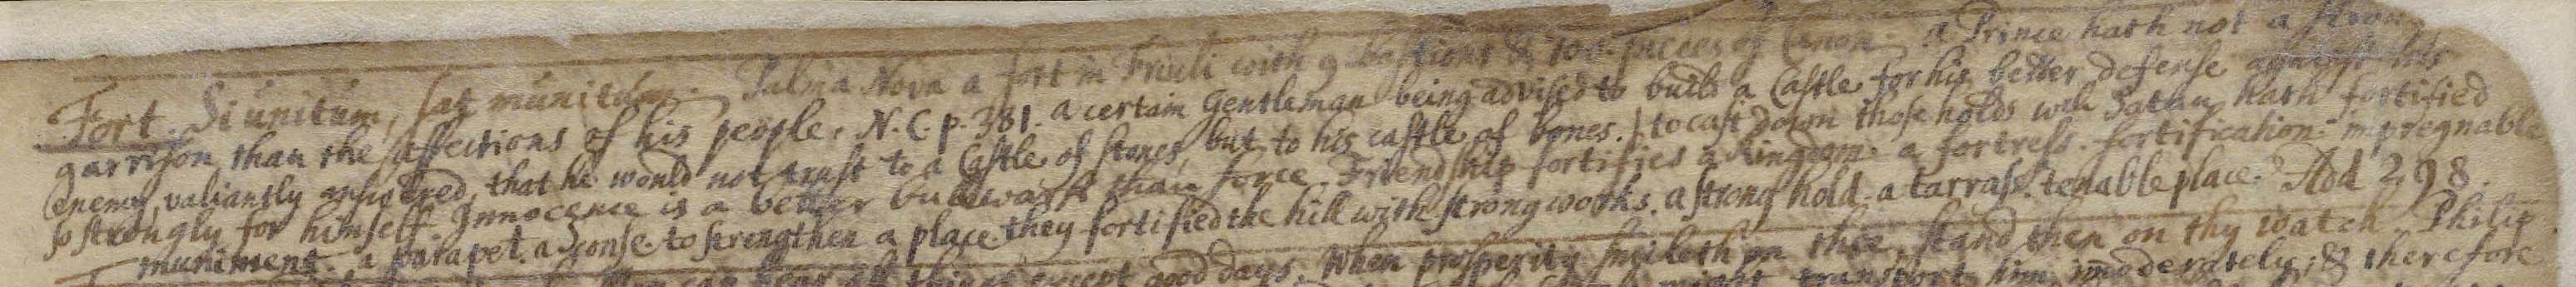 Fort. Si unitum, sat munitum. Palma Nova a fort in Friuli with 9 bastions & 700 pieces of Canon. a Prince hath not a
garrison than the affections of his people. N. C. p. 381. a certain Gentleman being advised to build a Castle for his better defense against his
enemy, valiantly answered, that he would not trust to a Castle of stones, but to his castle of bones. to cast down those holds wch Satan hath fortified
so strongly for himself. Innocence is a better bullwark than force. Friendship fortifies a Kingdom. a fortress. fortification. impregnable
muniment. a parapet. a sconse. to strengthen a place. they fortified the hill with strong works. a strong hold. a tarrass. tenable place. Add 298.
Men can bear all things except good days. When prosperity smileth on thee, stand then on thy watch. Philip
might transport him imoderately; & therefore